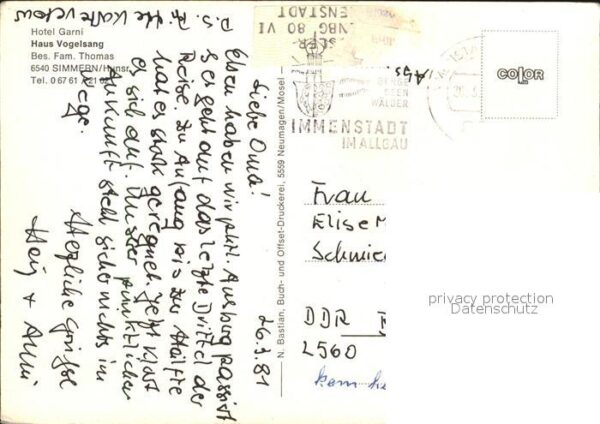 Hotel Garni
Haus Vogelsang
Bes. Fam. Thomas
6540 SIMMERN/Hunsr.
Tel. 0 67 61 / 21 62
26.3.81
Liebe Oma!
Eben haben wir Augsburg passiert
es geht auf das letzte Drittel der
Reise. Zu Anfang bis zur Hälfte
hat es stark geregnet. Jetzt klart
es sich auf. Unserer pünktlichen
Ankunft steht sicher nichts im
Wege.
Herzliche Grüße
+ Anni
N. Bastian, Buch- und Offset-Druckerei, 5559 Neumagen/Mosel
SEEN
WÄLDER
IMMENSTADT
IM ALLGÄU
COLOR
Frau
Elise M
Schmie
DDR
2560
privacy protection
Datenschutz